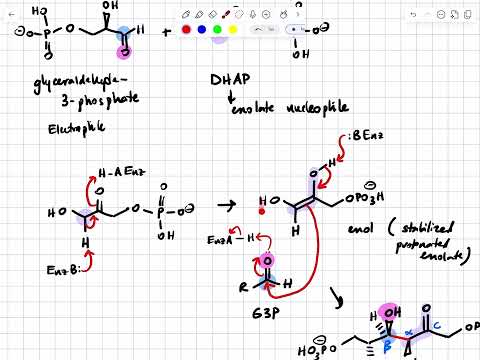 HO
OH
H
⊖O-P-O
O
+
O
OH
glyceraldehyde-
3-phosphate
Electrophile
DHAP
enolate nucleophile
H-A Enz
:B Enz
O
O
H
HO
O-P-O⊖
OH
H
Enz B:
H
O
H
OPO₃H⊖
enol (stabilized
protonated
enolate)
EnzA-H
O
R
H
G3P
H
OH
O
α
β
C
HO₃PO
OP